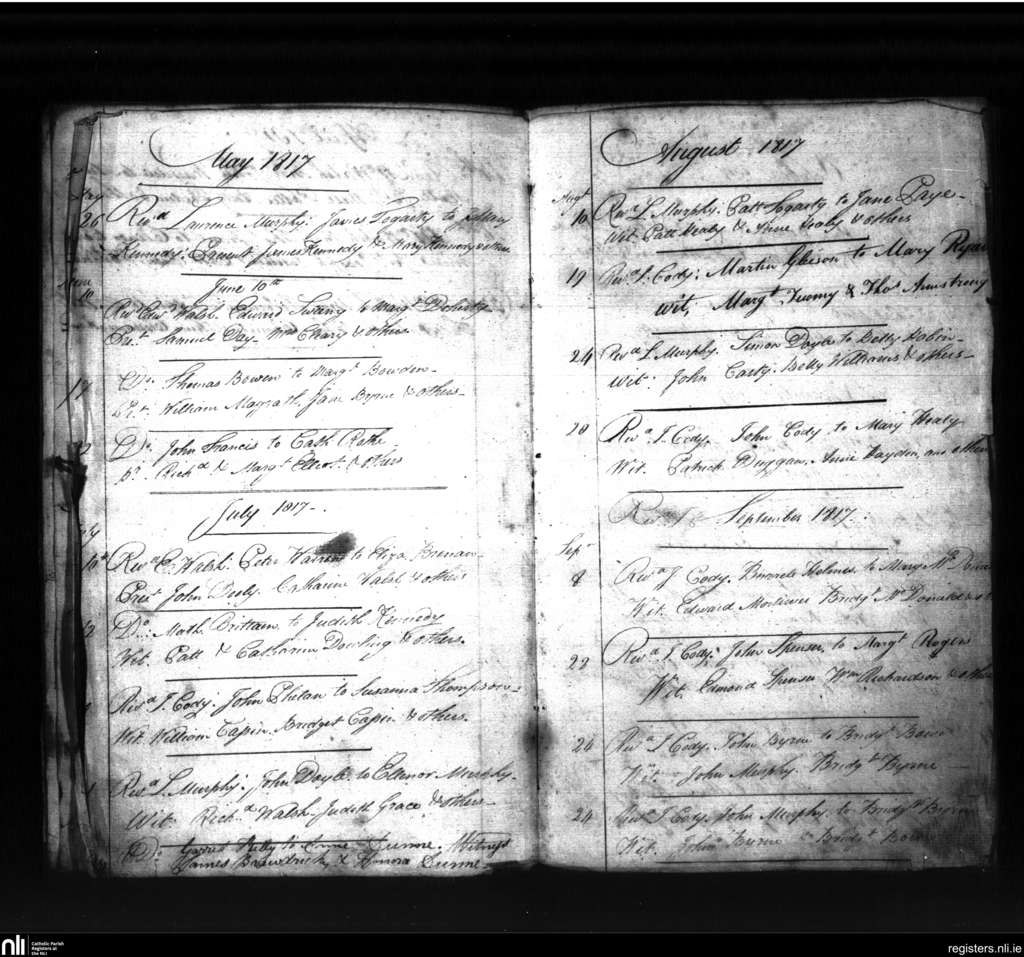 May 1817
May
26 Revd Lawrence Murphy. James Fogarty to Mary
Kennedy. Present James Kennedy & Mary Kennedy & others
June
10 June 10th
Revd Edwd Walsh. Edmd Sweeny to Margt Doherty
Prt. Samuel Day - Wm Cleary & others
17 Do. Thomas Bowen to Margt Bowden -
Prt. William Magrath. Jane Byrne & others -
Do. John Francis to Cath
Pt. Richd & Margt Elliot. & others
July 1817 -
10th Revd E. Walsh. Peter Warren to Eliza. Brenan -
Prest John Catharine Walsh & others
Do.: Math. Brittain to Judith Kennedy
Wit. Patt & Catharine Dowling & others.
Revd J. Cody. John Phelan to Susanna Thompson -
Wit. William Tapin. Bridget Tapin & others.
Revd L. Murphy. John Doyle to Ellenor Murphy -
Wit. Richd Walsh. Judith Grace & others -
Do: Garret Kelly to Anne Dunne. Witness
James & Honora Dunne -
August 1817
Augt
10 Revd L Murphy. Patt Fogarty to Jane Paye -
Wit. Patt Healy & Anne Healy & others
19 Revd J. Cody: Martin Gleison to Mary Ryan
Wit, Margt Twomy & Thos Armstrong
24 Revd L Murphy. Simon Doyle to Betty Dobin -
Wit. John Carty. Betty Williams & others -
28 Revd J. Cody. John Cody to Mary Healy
Wit. Patrick Duggan. Annie Hayden, and others
Revd J September 1817 :
Sepr
8 Revd J Cody. Holmes to Mary
Wit. Edward Bridgt McDonald &
22 Revd J. Cody. John Spenser to Margt Rogers
Wit. Edmond Spenser Wm Richardson & others
24 Revd J Cody. John Byrne to Bridgt
Wit. John Murphy. Bridgt Byrne -
24 Revd J Cody. John Murphy. to Bridgt Byrne
Wit. John Byrne Bridgt
nli
Catholic Parish
Registers at
the NLI
registers.nli.ie